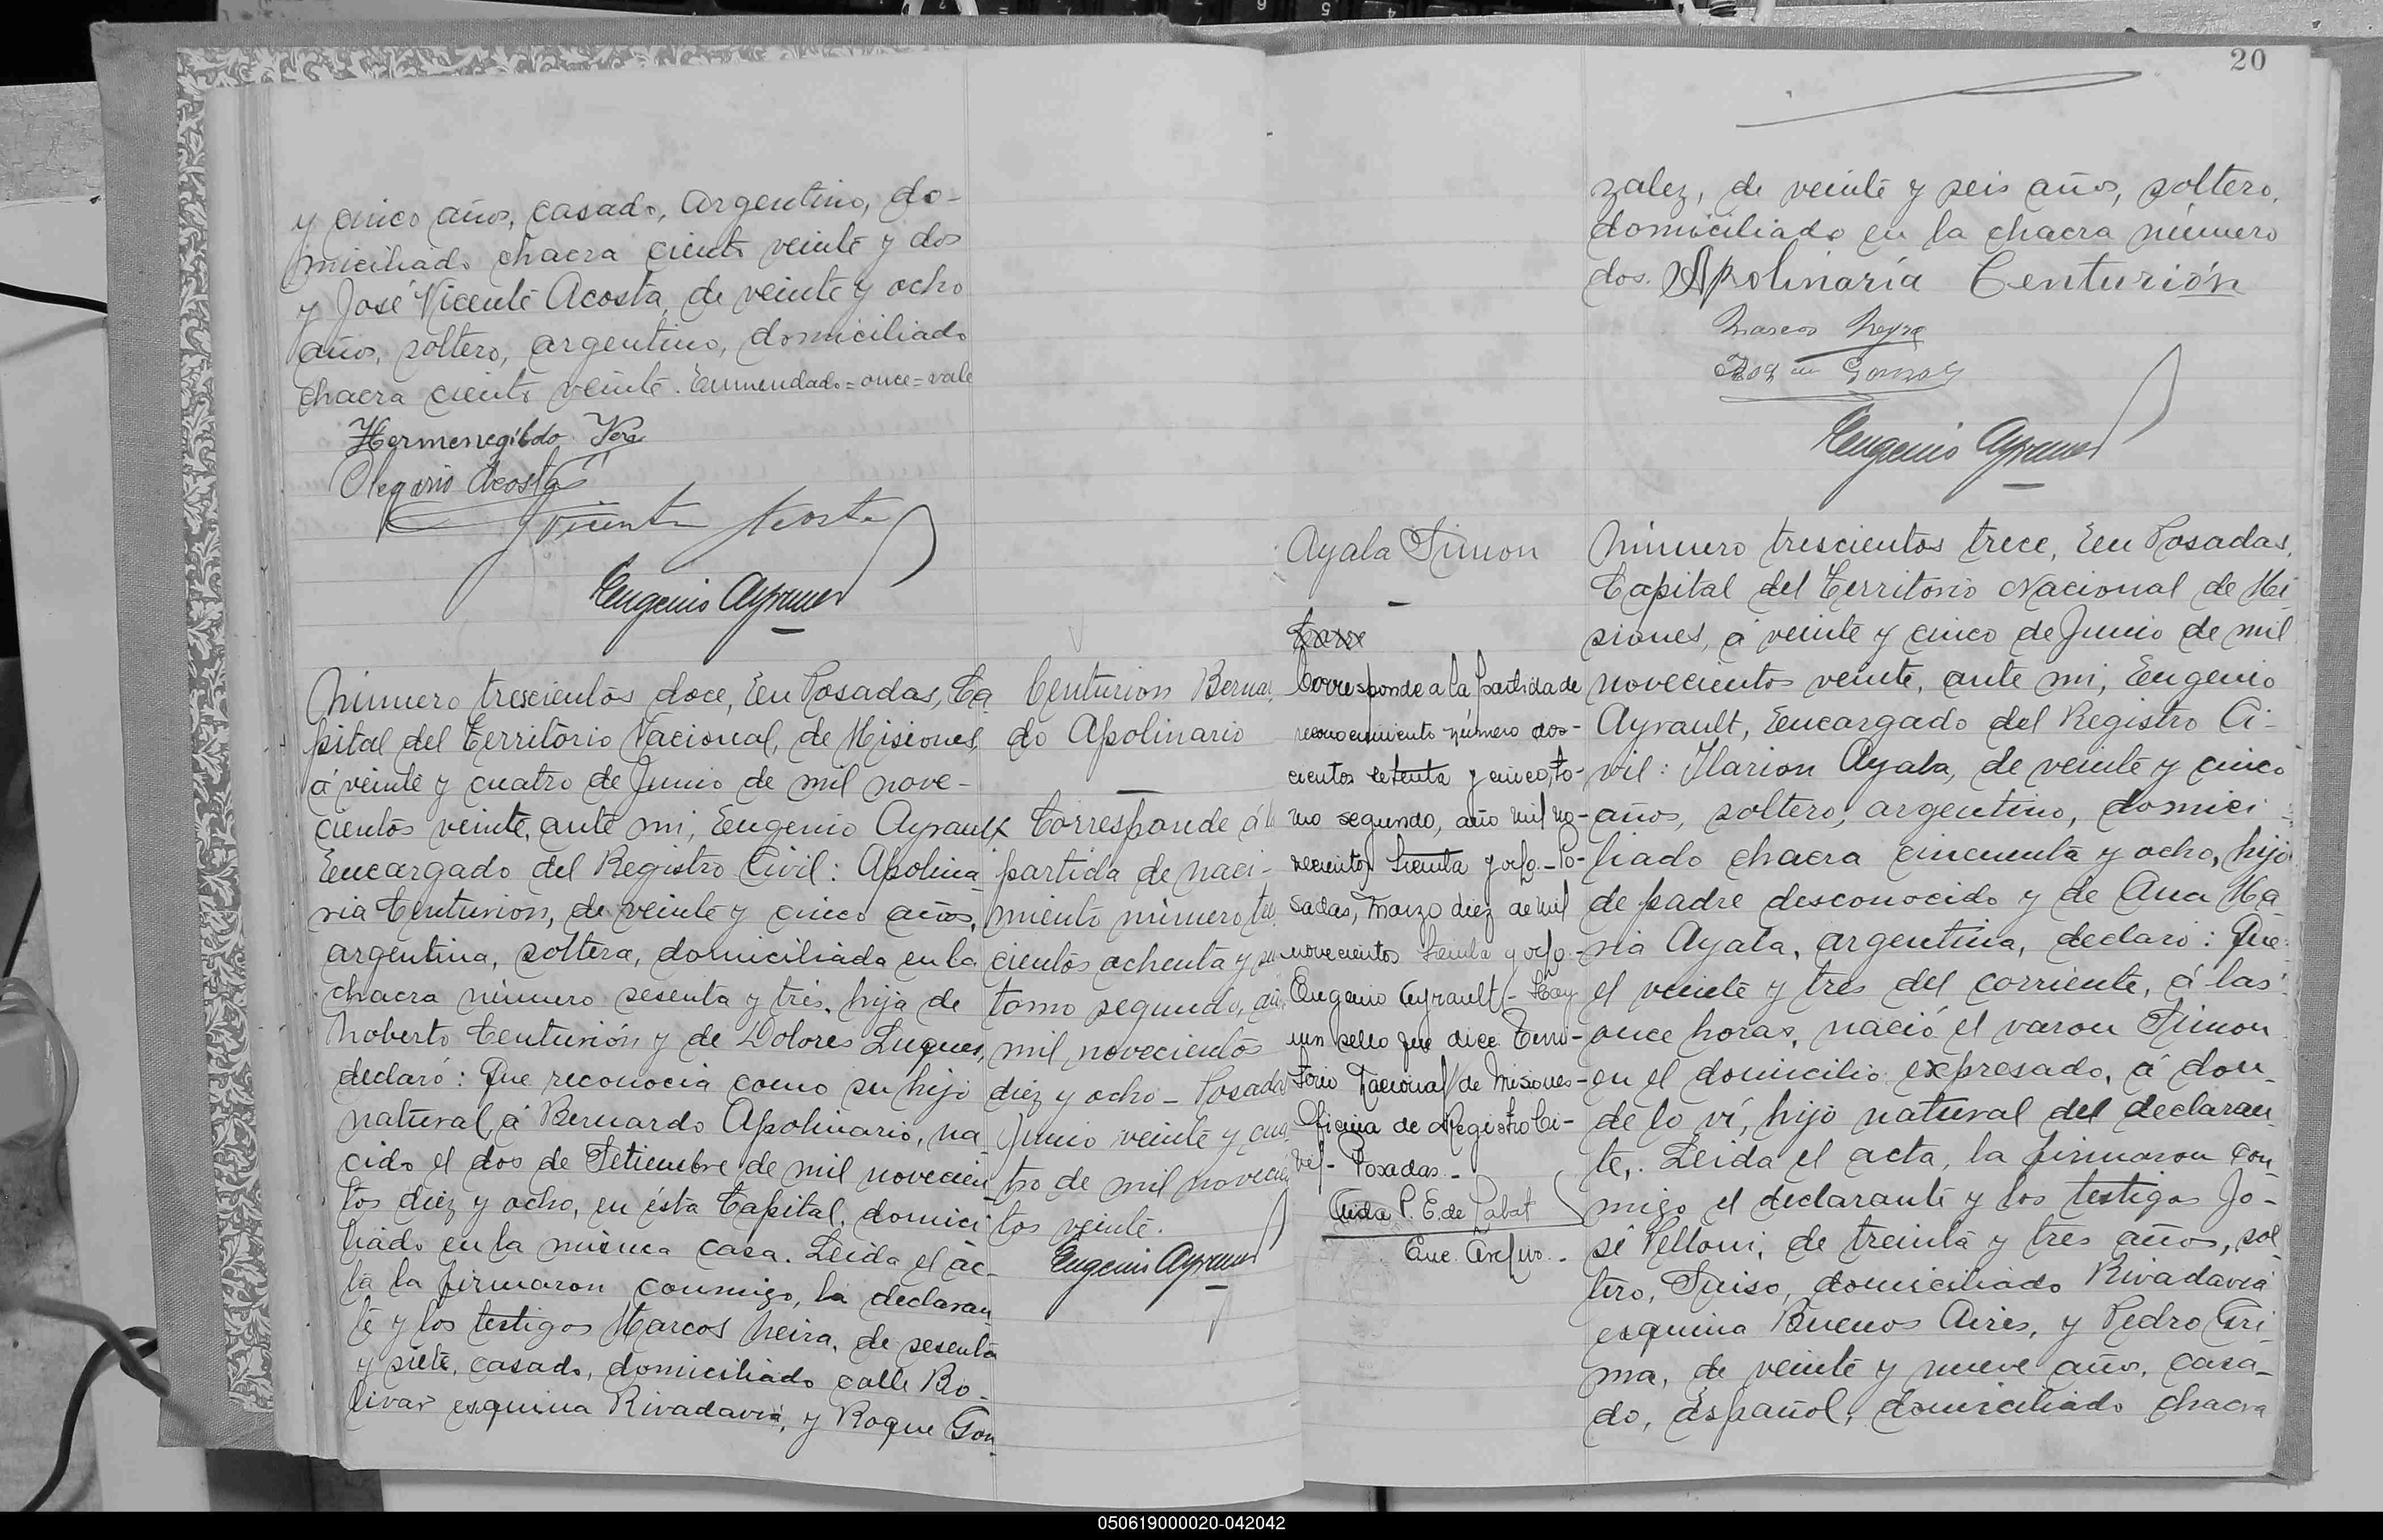 y cinco años, casado, argentino, do-
miciliado chacra ciento veinte y dos
y José Vicente Acosta, de veinte y ocho
años, soltero, argentino, domiciliado
chacra ciento veinte. Enmendado=once=vale
Hermenegildo Vera
Olegario Acosta
J Vicente Acosta
Eugenio Ayrault
Número trescientos doce, En Posadas, Ca
pital del Territorio Nacional, de Misiones,
á veinte y cuatro de Junio de mil nove-
cientos veinte, ante mi, Eugenio Ayrault
Encargado del Registro Civil: Apolina
ria Centurion, de veinte y cinco años,
argentina, soltera, domiciliada en la
chacra número sesenta y tres, hija de
Noberto Centurión y de Dolores Luques,
declaró: Que reconocia como su hijo
natural, á Bernardo Apolinario, na
cido el dos de Setiembre de mil novecien
tos diez y ocho, en ésta Capital, domici
liado en la misma casa. Leida el ac-
ta la firmaron conmigo, la declaran
te y los testigos Marcos Neira, de sesenta
y siete, casado, domiciliado calle Bo-
livar esquina Rivadavia, y Roque Gon
Centurion Bernar
do Apolinario
Corresponde á la
partida de naci-
miento número tres
cientos ochenta y
tomo segundo, año
mil novecientos
diez y ocho - Posadas
Junio veinte y cua
tro de mil novecien
tos veinte.
Eugenio Ayrault
20
zalez, de veinte y seis años, soltero,
domiciliado en la chacra número
dos. Apolinaria Centurión
Marcos Neyra
Roque Gonzalez
Eugenio Ayrault
Ayala Simon
Corresponde a la partida de
reconocimiento número dos-
cientos setenta y cinco, to-
mo segundo, año mil no-
vecientos treinta y ocho.- Po-
sadas, Marzo diez de mil
novecientos treinta y ocho.-
Eugenio Ayrault - Hay
un sello que dice Terri-
torio Nacional de Misiones-
Oficina de Registro Ci-
vil - Posadas.-
Aida P. E. de Pabat
Enc. Archivo.-
Número trescientos trece, En Posadas,
Capital del Territorio Nacional de Mi
siones, á veinte y cinco de Junio de mil
novecientos veinte, ante mi, Eugenio
Ayrault, Encargado del Registro Ci-
vil: Ilarion Ayala, de veinte y cinco
años, soltero, argentino, domici-
liado chacra cincuenta y ocho, hijo
de padre desconocido y de Ana Ma
ria Ayala, argentina, declaró: Que
el veinte y tres del corriente, á las
once horas, nació el varon Simon
en el domicilio expresado, á don-
de lo ví, hijo natural del declaran
te,. Leida el acta, la firmaron con
migo el declarante y los testigos Jo-
sé Pelloni, de treinta y tres años, sol
tero, Suiso, domiciliado Rivadavia
esquina Buenos Aires, y Pedro Gri
ma, de veinte y nueve años, casa-
do, Español, domiciliado chacra
050619000020-042042